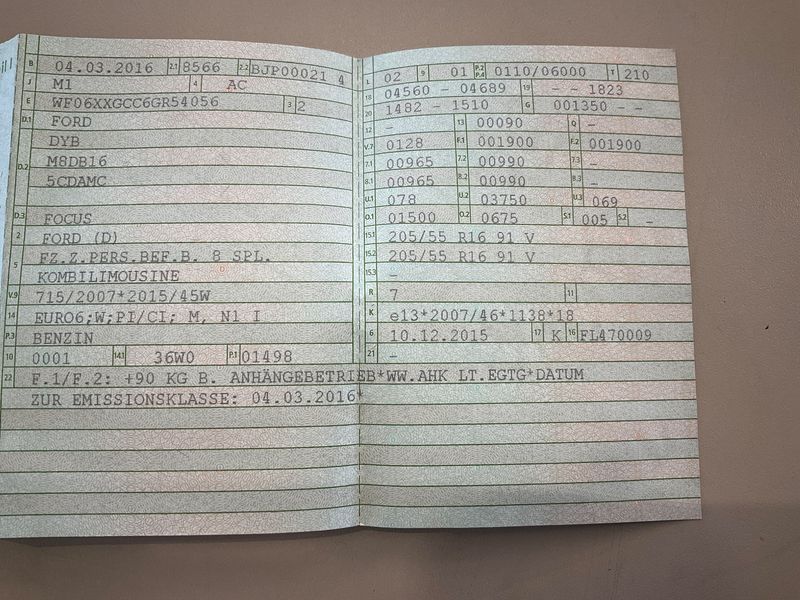 B 04.03.2016 2.1 8566 2.2 BJP00021 4
J M1 4 AC
E WF06XXGCC6GR54056 3 2
D.1 FORD
DYB
D.2 M8DB16
5CDAMC
D.3 FOCUS
2 FORD (D)
5 FZ.Z.PERS.BEF.B. 8 SPL.
KOMBILIMOUSINE
V.9 715/2007*2015/45W
14 EURO6;W;PI/CI; M, N1 I
P.3 BENZIN
10 0001 14.1 36W0 P.1 01498
22 F.1/F.2: +90 KG B. ANHÄNGEBETRIEB*WW.AHK LT.EGTG*DATUM
ZUR EMISSIONSKLASSE: 04.03.2016*
L 02 9 01 P.2 P.4 0110/06000 T 210
18 04560 - 04689 19 - - 1823
20 1482 - 1510 G 001350 - -
12 - 13 00090 Q -
V.7 0128 F.1 001900 F.2 001900
7.1 00965 7.2 00990 7.3 -
8.1 00965 8.2 00990 8.3 -
U.1 078 U.2 03750 U.3 069
O.1 01500 O.2 0675 S.1 005 S.2 -
15.1 205/55 R16 91 V
15.2 205/55 R16 91 V
15.3 -
R 7 11
K e13*2007/46*1138*18
6 10.12.2015 17 K 16 FL470009
21 -